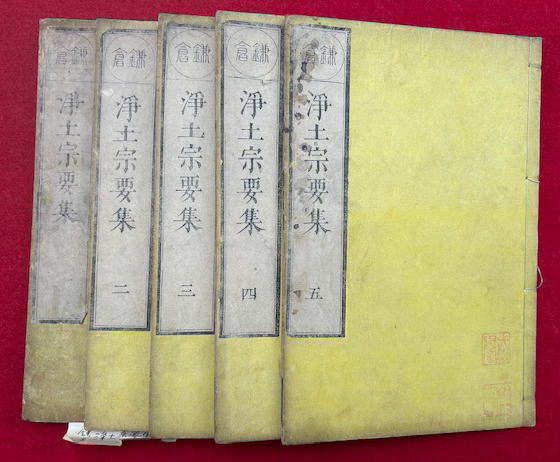 鎌倉
淨土宗要集
鎌倉
淨土宗要集
二
鎌倉
淨土宗要集
三
鎌倉
淨土宗要集
四
鎌倉
淨土宗要集
五